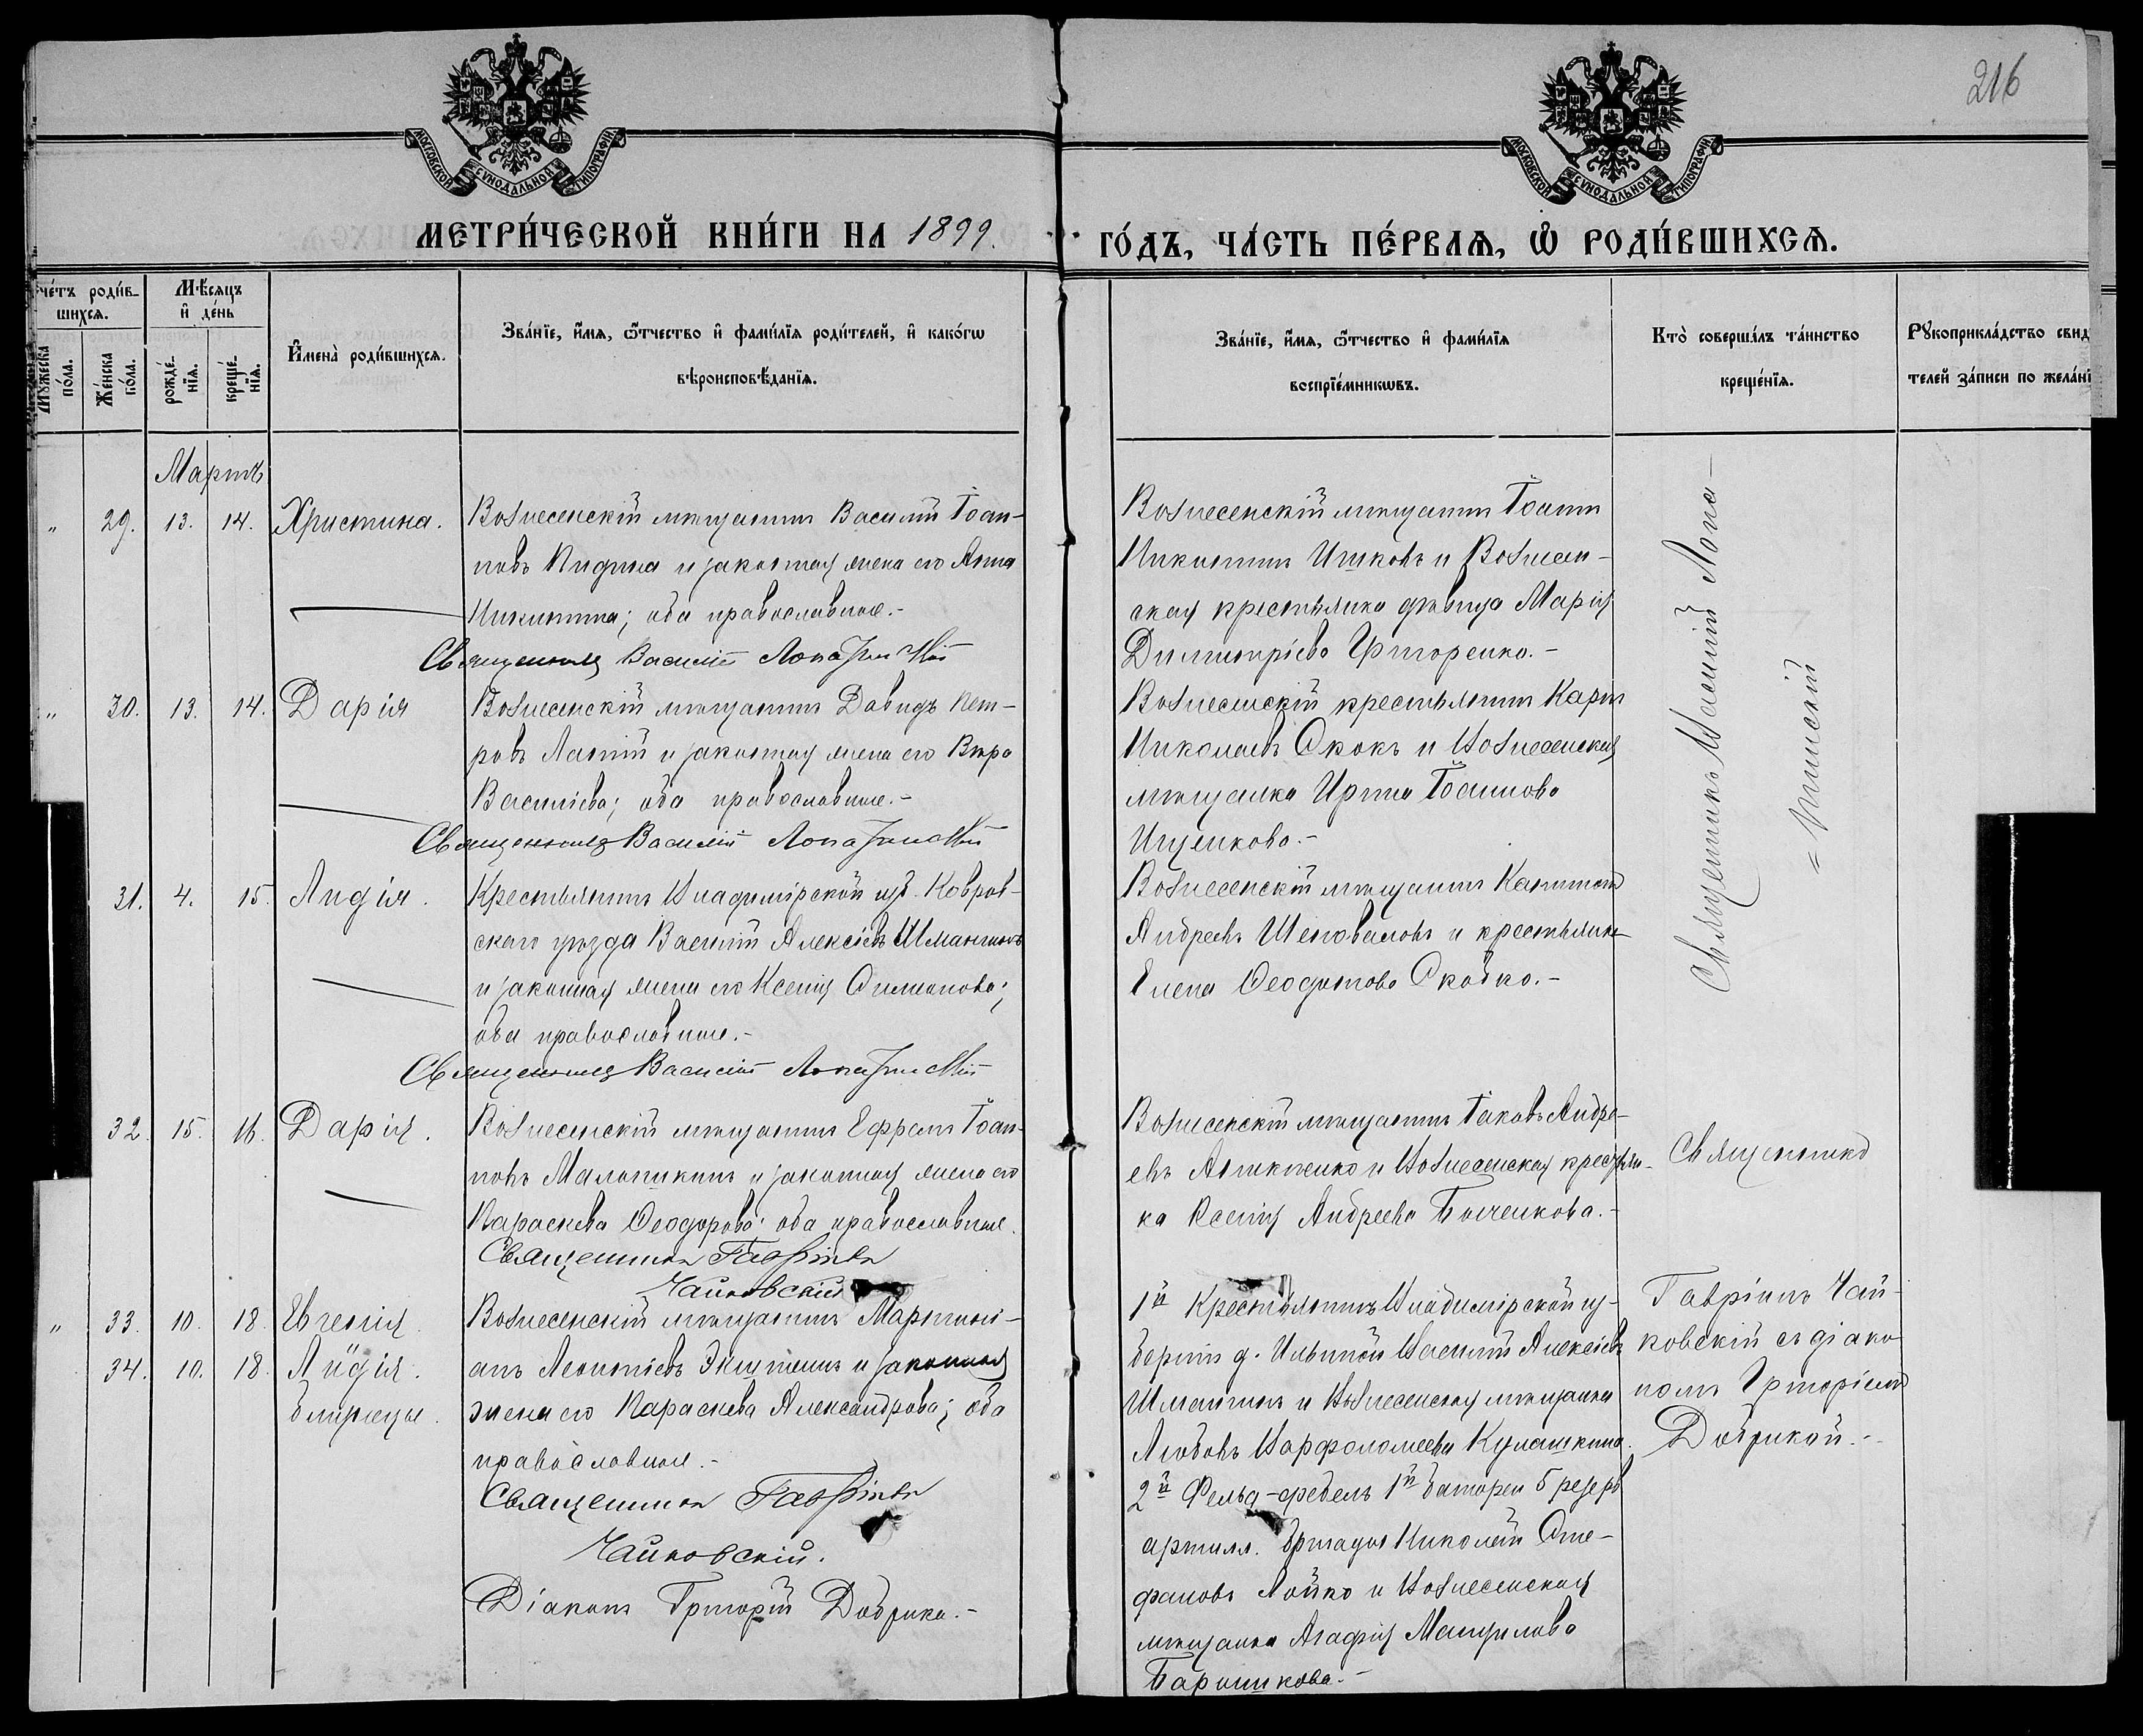 216
МОСКОВСКОЙ СѴНОДАЛЬНОЙ ТИПОГРАФІИ
МОСКОВСКОЙ СѴНОДАЛЬНОЙ ТИПОГРАФІИ
МЕТРИ́ЧЕСКОЙ КНИ́ГИ НА 1899.
ГО́ДЪ, ЧА́СТЬ ПЕ́РВАѦ, Ѡ҆ РОДИ́ВШИХСѦ.
че́тъ роди́в-
шихсѧ.
Мꙋ́жеска
по́ла.
Же́нска
по́ла.
Мѣ́сяцъ
и҆ де́нь
рожде́-
нїѧ.
креще́-
нїѧ.
И҆мена̀ роди́вшихсѧ.
Зва́нїе, и҆́мѧ, ѻ҆́тчество и҆ фами́лїѧ роди́телей, и҆ како́гѡ
вѣроисповѣ́данїѧ.
Зва́нїе, и҆́мѧ, ѻ҆́тчество и҆ фами́лїѧ
воспрїе́мникѡвъ.
Кто̀ соверша́лъ та́инство
креще́нїѧ.
Рꙋкоприкла́дство свид
телей за́писи по жела́нї
Мартъ
" 29. 13. 14. Христина.
Вознесенскій мѣщанинъ Василій Іоан-
новъ Пидпла и законная жена его Анна
Никитина; оба православные.-
Священникъ Василій Лопатинскій
Вознесенскій мѣщанинъ Іоаннъ
Никитинъ Ишковъ и Вознесен-
ская крестьянка дѣвица Марія
Димитріева Григоренко.-
Священникъ Василій Лопа-
=тинскій
" 30. 13. 14. Дарія
Вознесенскій мѣщанинъ Давидъ Пет-
ровъ Лапій и законная жена его Вѣра
Василіева; оба православные.-
Священникъ Василій Лопатинскій
Вознесенскій крестьянинъ Карпъ
Николаевъ Скокъ и Вознесенская
мѣщанка Ирина Іоаннова
Ищенкова.-
31. 4. 15. Лидія.
Крестьянинъ Владимірской губ. Ковров-
скаго уѣзда Василій Алексіевъ Шмангинъ
и законная жена его Ксенія Филипова;
оба православные.-
Священникъ Василій Лопатинскій
Вознесенскій мѣщанинъ Капитонъ
Андреевъ Шеповаловъ и крестьянка
Елена Ѳеодотова Скобко.-
32. 15. 16. Дарія.
Вознесенскій мѣщанинъ Ефремъ Іоан-
новъ Малышкинъ и законная жена его
Параскева Ѳеодорова; оба православные.
Священникъ Гавріилъ
Чайковскій
Вознесенскій мѣщанинъ Іаковъ Андре-
евъ и Вознесенская крестьян-
ка Ксенія Андреева Быченкова.-
Священникъ
Гавріилъ Чай-
ковскій съ діако-
номъ Григоріемъ
Добрикой.-
" 33. 10. 18. Евгенія
34. 10. 18. Лидія.
близнецы.
Вознесенскій мѣщанинъ Мартині-
анъ Леонтіевъ и законная
жена его Параскева Александрова; оба
православные.-
Священникъ Гавріилъ
Чайковскій.
Діаконъ Григорій Добрика.-
1й Крестьянинъ Владимірской гу-
берніи д. Ильиной Василій Алексіевъ
Шмангинъ и Вознесенская мѣщанка
Любовь Варфоломеева Кулашкина.
2й Фельд-фебель 1й батареи 5 резерв
артилл. бригады Николай Сте-
фановъ Лойко и Вознесенская
мѣщанка Агафія Мануилова
Барышкова.-